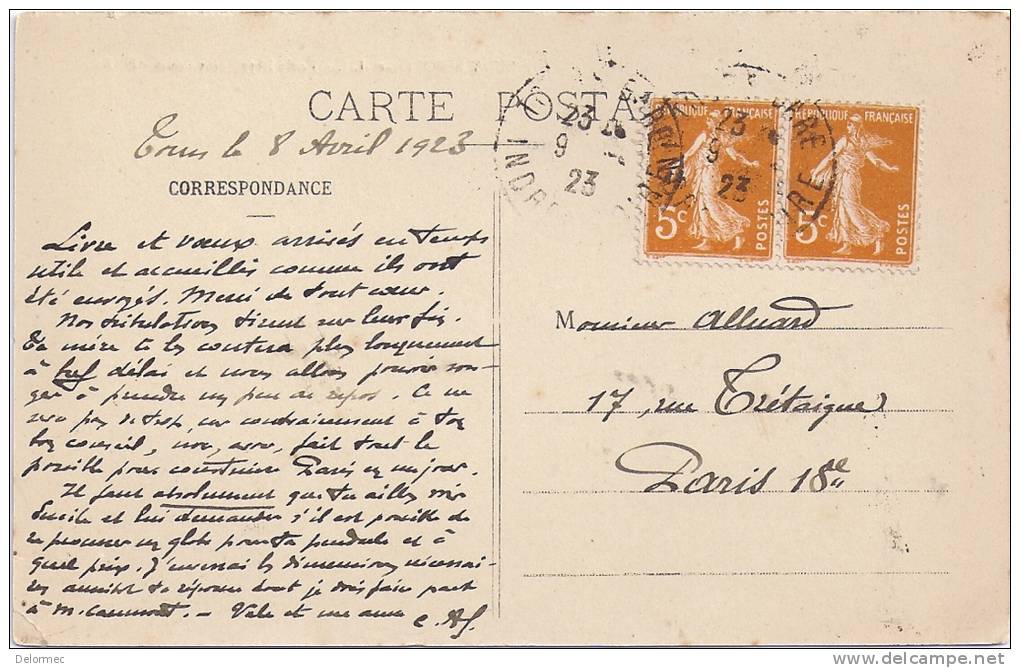 CARTE POSTALE
Tours le 8 Avril 1923
CORRESPONDANCE
Livre et voeux arrivés en temps
utile et accueillis comme ils ont
été envoyés. Merci de tout coeur.
Nos tribulations tirent sur leur fin.
Ta mère te les contera plus longuement
à bref délai et nous allons pouvoir son-
ger à prendre un peu de repos. Ce ne
sera pas de trop, car contrairement à ton
bon conseil, nous avons fait tout le
possible pour construire Paris en un jour.
Il faut absolument que tu ailles voir
et lui demander s'il est possible de
se procurer un globe pour ta pendule et à
quel prix. J'enverrai les dimensions nécessai-
res aussitôt ta réponse dont je dois faire part
à M. Caumont. - Vale et me ama
RÉPUBLIQUE FRANÇAISE
5c
POSTES
RÉPUBLIQUE FRANÇAISE
5c
POSTES
23
9
23
INDRE
23
9
23
Monsieur Alluard
17, rue Trétaigne
Paris 18e
Delormec
delcampe.net